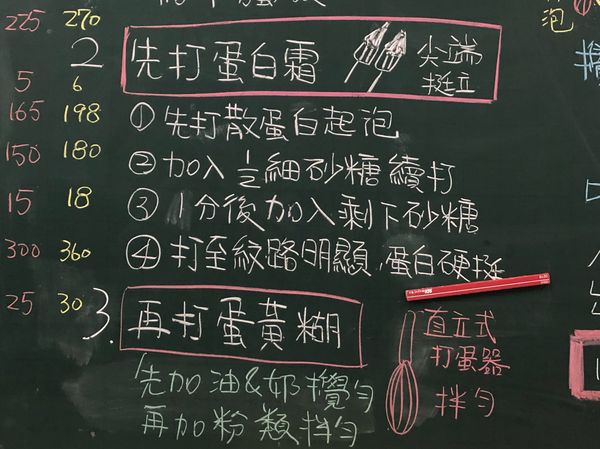 225 270
2 先打蛋白霜 尖端
挺立
5 6
165 198 ① 先打散蛋白起泡
150 180 ② 加入½細砂糖續打
15 18 ③ 1分後加入剩下砂糖
300 360 ④ 打至紋路明顯,蛋白硬挺
25 30 3. 再打蛋黃糊
直立式
打蛋器
拌勻
先加油&奶攪勻
再加粉類拌勻
泡